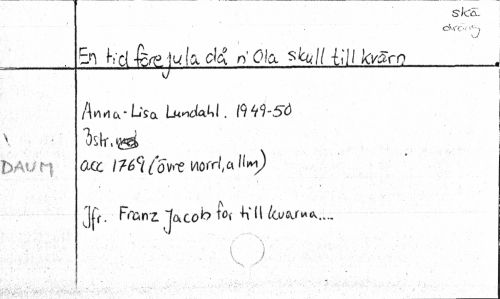 skä
dräng
En tid före jula då n' Ola skull till kvärn
Anna-Lisa Lundahl. 1949-50
3str.
DAUM
acc 1769 (övre norrl, allm)
Jfr. Franz Jacob for till kvarna....